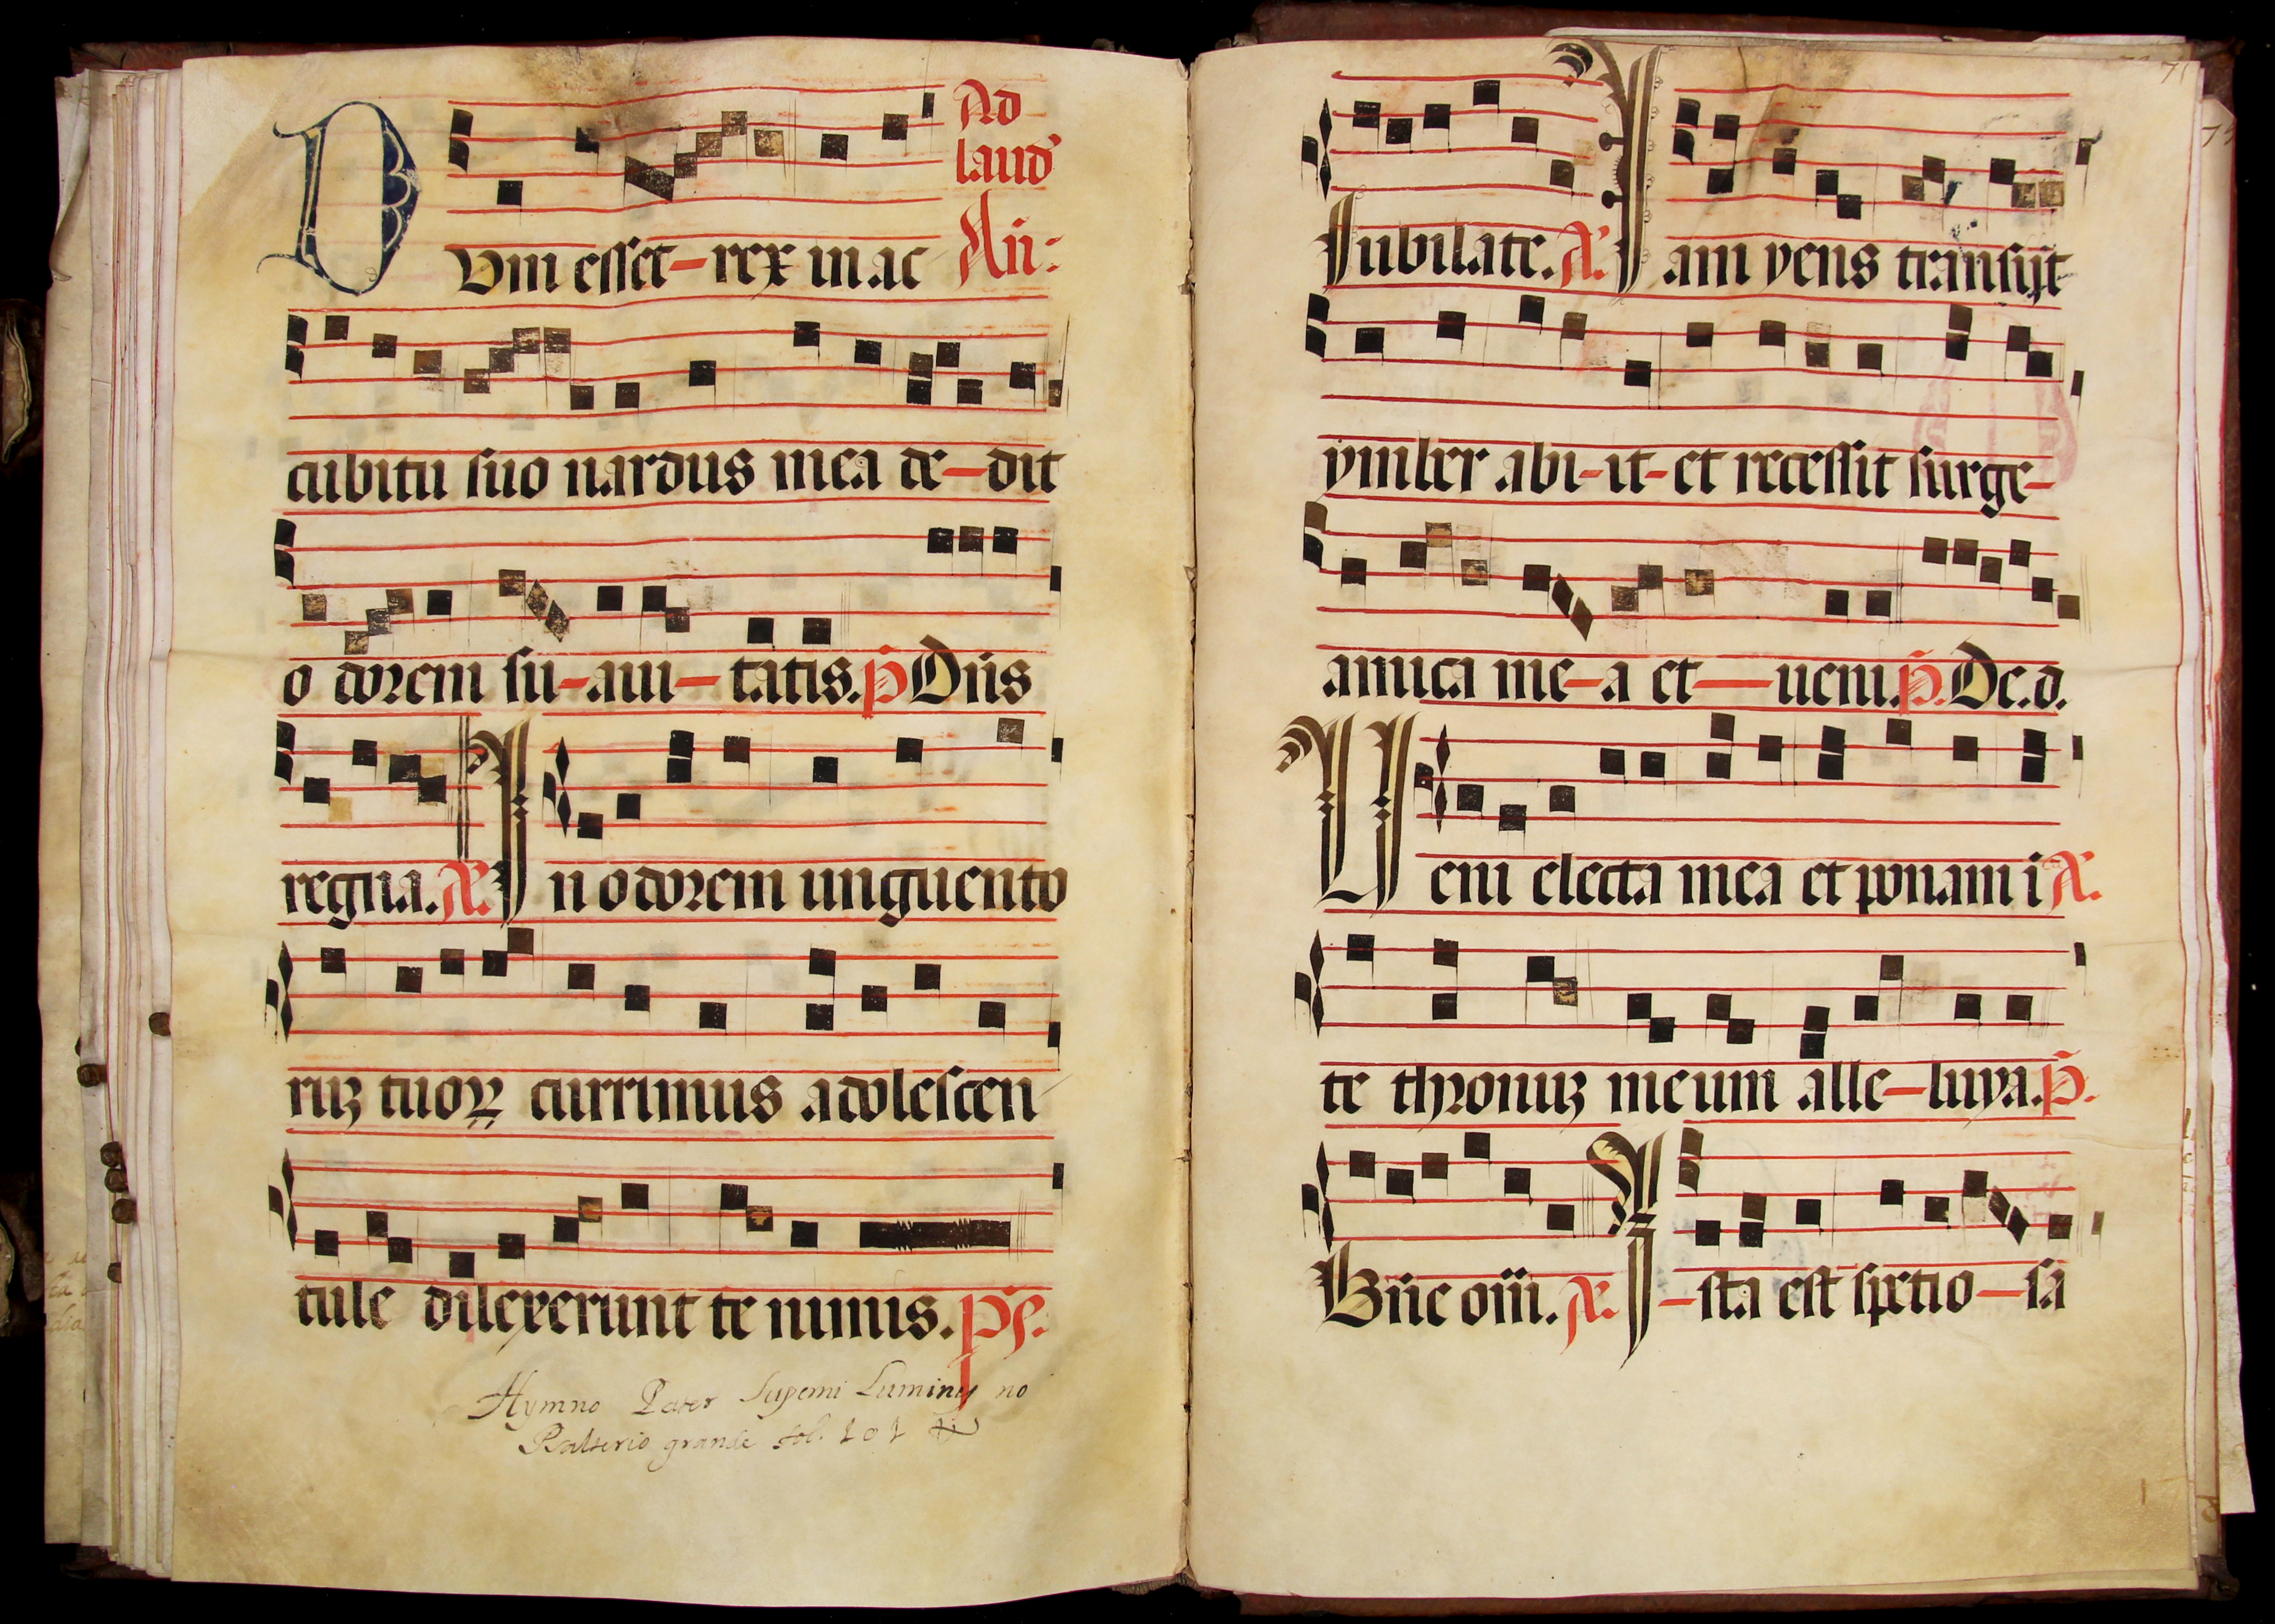 Ad
laud
DUm esset-rex in ac Añ:
cubitu suo nardus mea de-dit
o dorem su-aui-tatis. p̃ Dñs
regna. A. In odorem unguento
ruʒ tuoꝝ currimus adolescen
tule dilexerunt te nimis. ps.
Hymno Pater Superni Luminis no
Psalterio grande fol. 101
Iubilate. A. Iam yens transijt
ymber abi-it-et recessit surge-
amica me-a et-ueni. p̃. De.d.
Ueni electa mea et ponam i A.
te thronuʒ meum alle-luya. p̃.
Bñe oñi. A. I-sta est spetio-sa